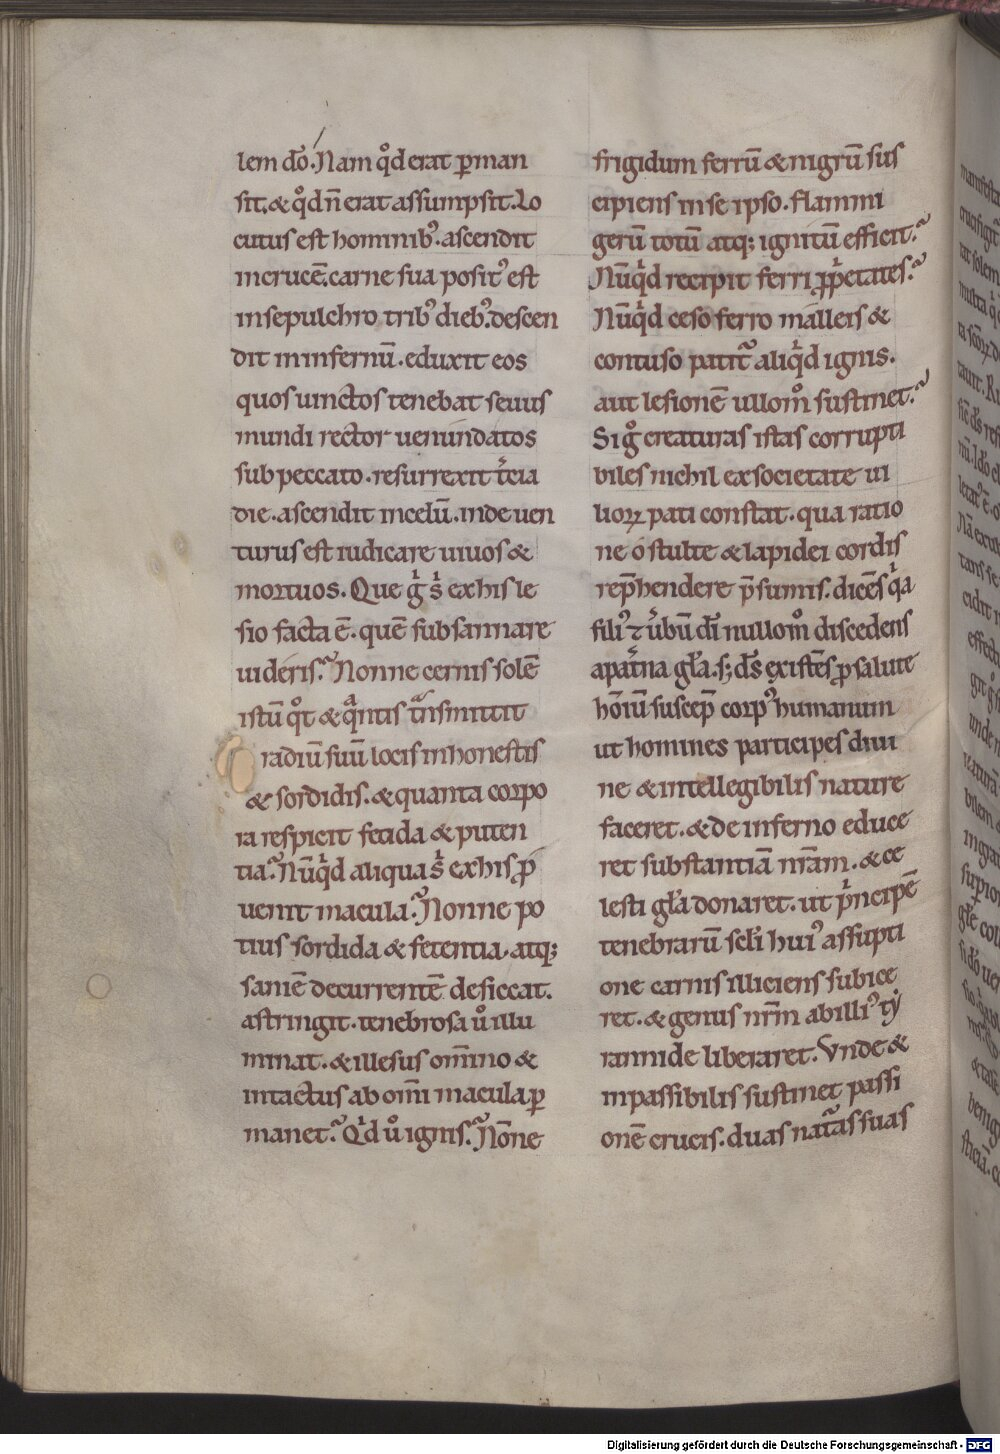 lem dō. Nam qͦd erat ꝑman
sit. & qͦd n̄ erat assumpsit. Lo
cutus est hominibꝰ. ascendit
in crucē. carne sua positꝰ est
in sepulchro tribꝰ diebꝰ. descen
dit in infernū. eduxit eos
quos uinctos tenebat seuus
mundi rector uenundatos
sub peccato. resurrexit t̄cia
die. ascendit in celū. inde uen
turus est iudicare uiuos &
mortuos. Que gͥ sͥ ex his le
sio facta ē. quē subsannare
uideris? Nonne cernis solē
istū qͦt & qͣntis tͣnsmittit
radiū suū locis inhonestis
& sordidis. & quanta corpo
ra respicit fetida & puten
tia? Nūqͥd aliqua sͥ ex his ꝓ
uenit macula? Nonne po
tius sordida & fetentia. atq;
saniē decurrentē desiccat.
astringit. tenebrosa uͦ illu
minat. & illesus om̄ino &
intactus ab om̄i macula ꝑ
manet? Qͥd uͦ ignis? Nōne
frigidum ferrū & nigrū sus
cipiens in se ipso. flammi
gerū totū atq; ignitū efficit?
Nūqͥd recipit ferri ꝓpͥetates?
Nūqͥd ceso ferro malleis &
contuso patit᷑ aliqͥd ignis.
aut lesionē ullomͦ sustinet?
Si gͦ creaturas istas corrupti
biles nichil ex societate ui
lioꝝ pati constat. qua ratio
ne o stulte & lapidei cordis
rep̄hendere p̄sumis. dicēs qͥa
filiꝰ ⁊ uͥbū dī nullomͦ discedens
a pat̄na gl̄a. s; d̄s existēs ꝓ salute
hoīū suscep̄ corpꝰ humanum
ut homines participes diui
ne & intellegibilis nature
faceret. & de inferno educe
ret substantiā nr̄am. & ce
lesti gl̄a donaret. ut pͥncipē
tenebrarū scl̄i huiꝰ assupti
one carnis illiciens subice
ret. & genus nr̄m ab illiꝰ ty
rannide liberaret. Vnde &
inpassibilis sustinet passi
onē crucis. duas naturas suas
Digitalisierung gefördert durch die Deutsche Forschungsgemeinschaft - DFG